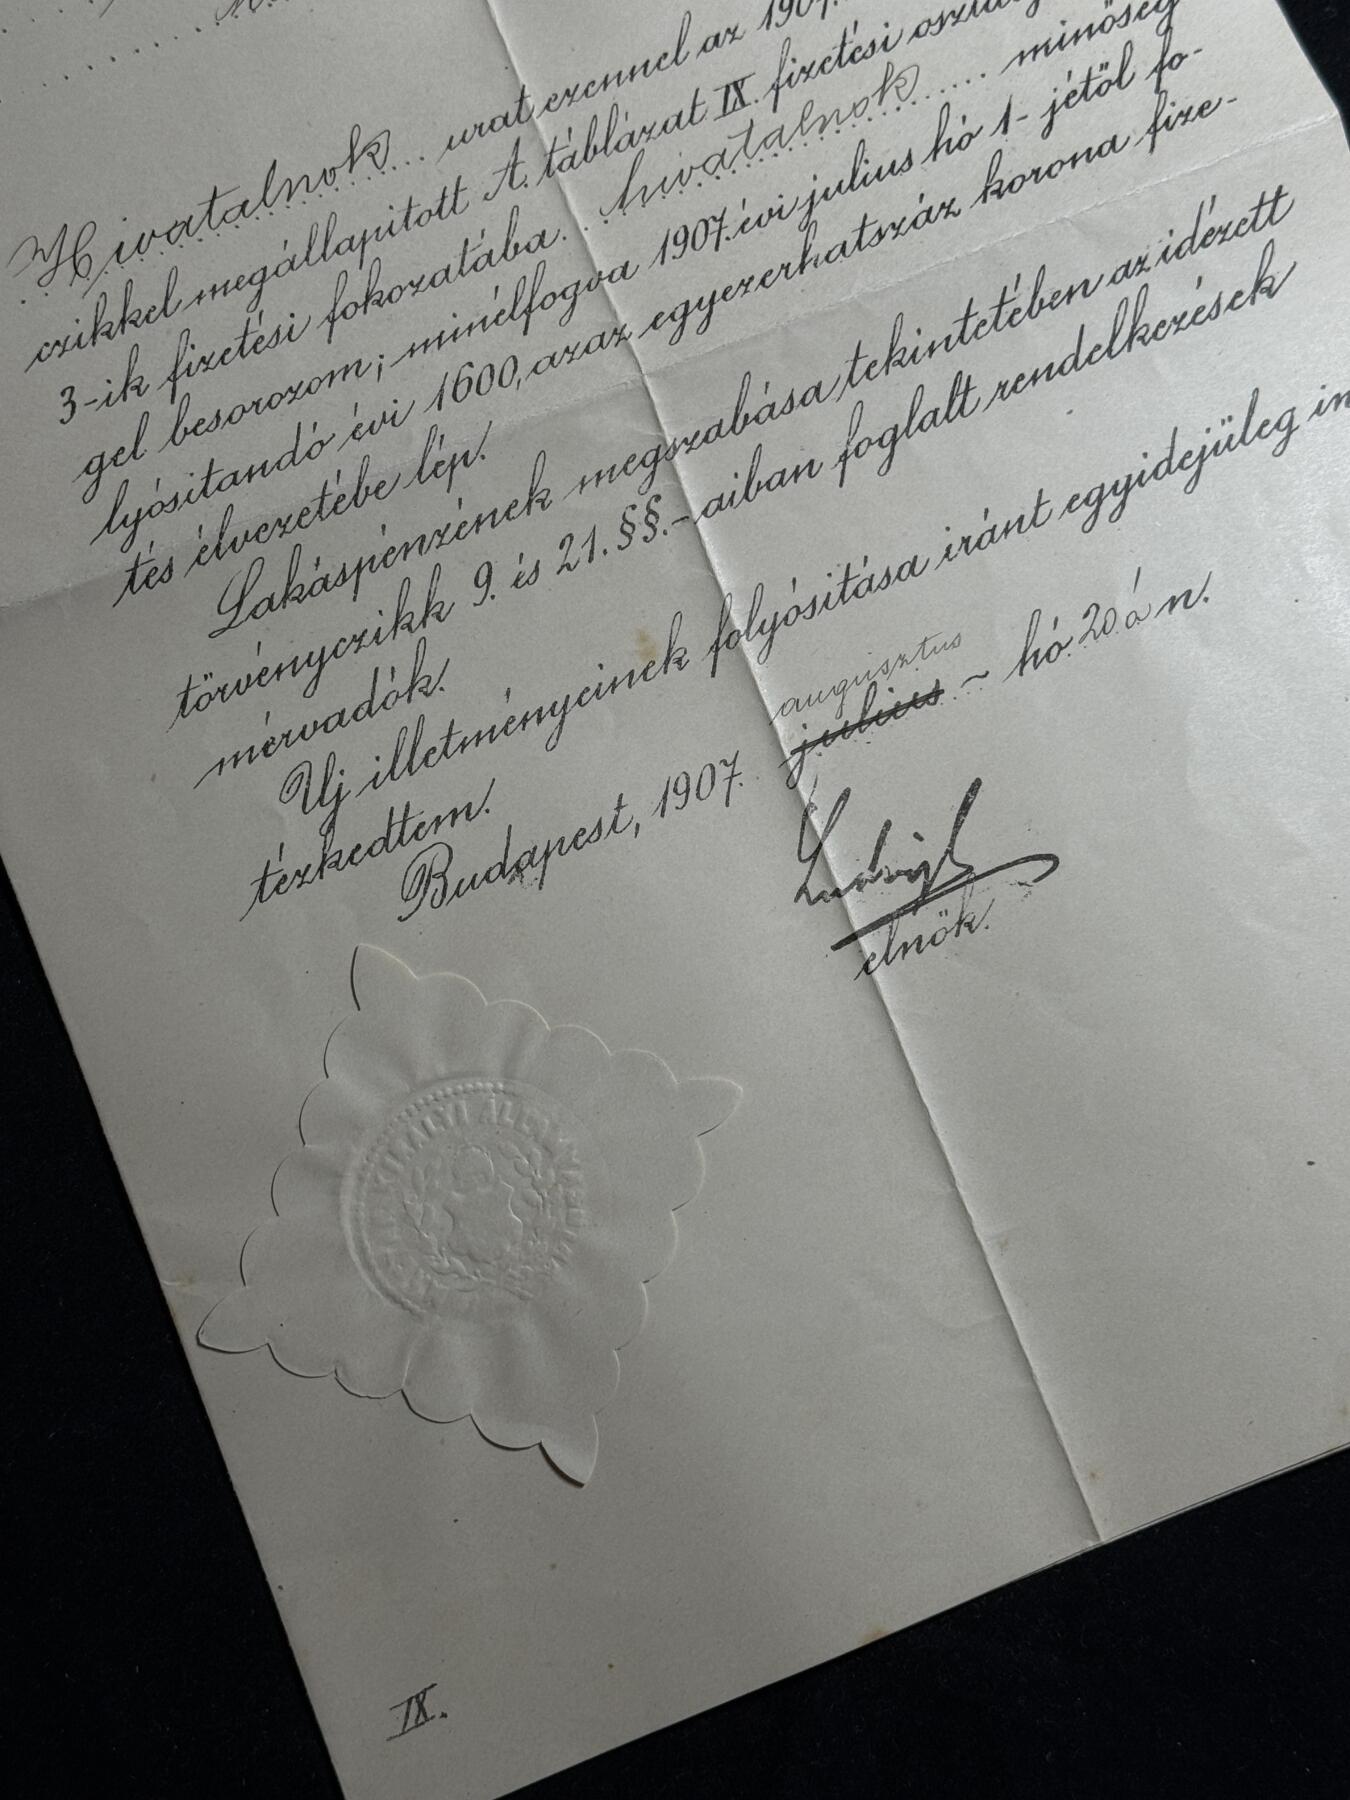 Hivatalnok urat ezennel az 1907.
czikkel megállapított A. táblázat IX. fizetési osztály
3-ik fizetési fokozatába hivatalnok minőség
gel besorozom; minélfogva 1907. évi julius hó 1-jétől fo-
lyósitandó évi 1600, azaz egyezerhatszáz korona fize-
tés élvezetébe lép.
Lakáspénzének megszabása tekintetében az idézett
törvényczikk 9. és 21. §§.-aiban foglalt rendelkezések
mérvadók.
Uj illetményeinek folyósitása iránt egyidejüleg in
tézkedtem.
augusztus
Budapest, 1907. julius ~ hó 20 án.
Ludvigh
elnök.
KIRÁLYI
IX.